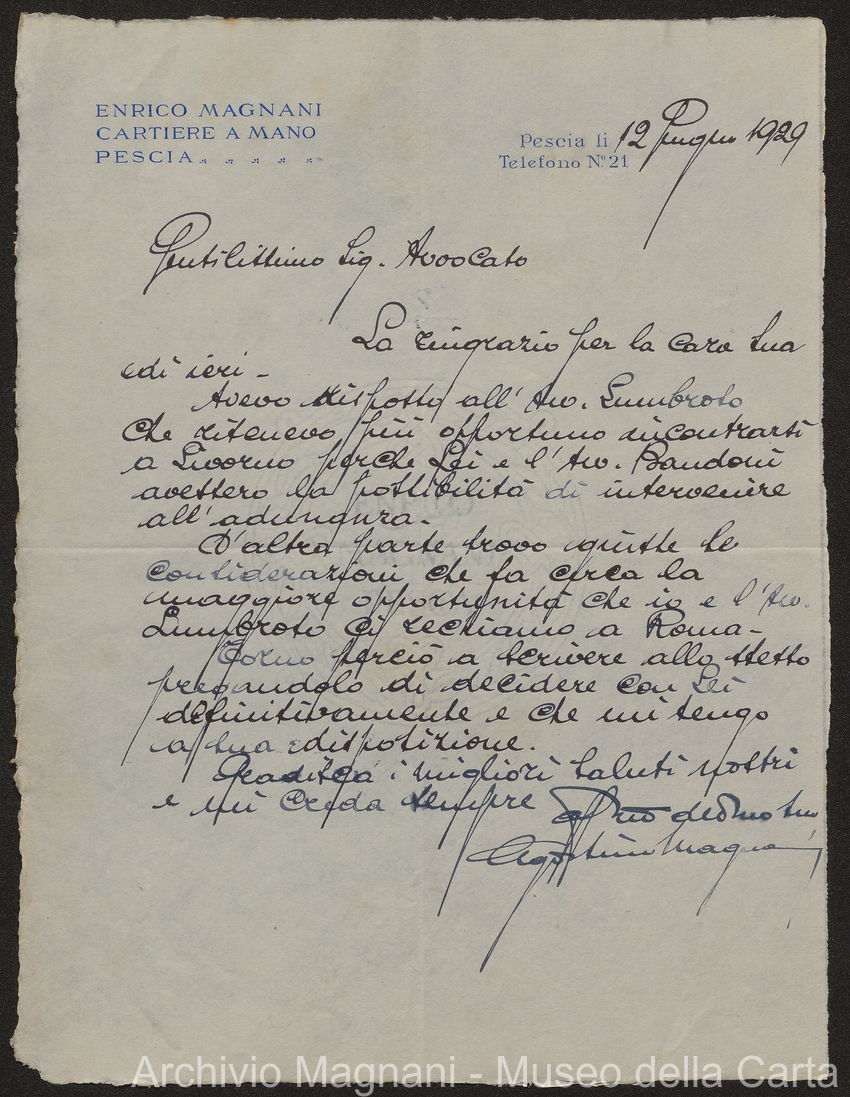 ENRICO MAGNANI
CARTIERE A MANO
PESCIA
Pescia li 12 Giugno 1929
Telefono N.º 21
Gentilissimo Sig. Avvocato
La ringrazio per la cara sua
di ieri -
Avevo risposto all' Avv. Lumbroso
che ritenevo più opportuno incontrarsi
a Livorno perché Lei e l'Avv. Bandoni
avessero la possibilità di intervenire
all'adunanza.
D'altra parte trovo giuste le
considerazioni che fa circa la
maggiore opportunità che io e l'Avv.
Lumbroso ci rechiamo a Roma -
Torno perciò a scrivere allo stesso
pregandolo di decidere con Lei
definitivamente e che mi tengo
a sua disposizione.
Gradisca i migliori saluti nostri
e mi creda sempre aff.mo dev.mo suo
Agostino Magnani
Archivio Magnani - Museo della Carta